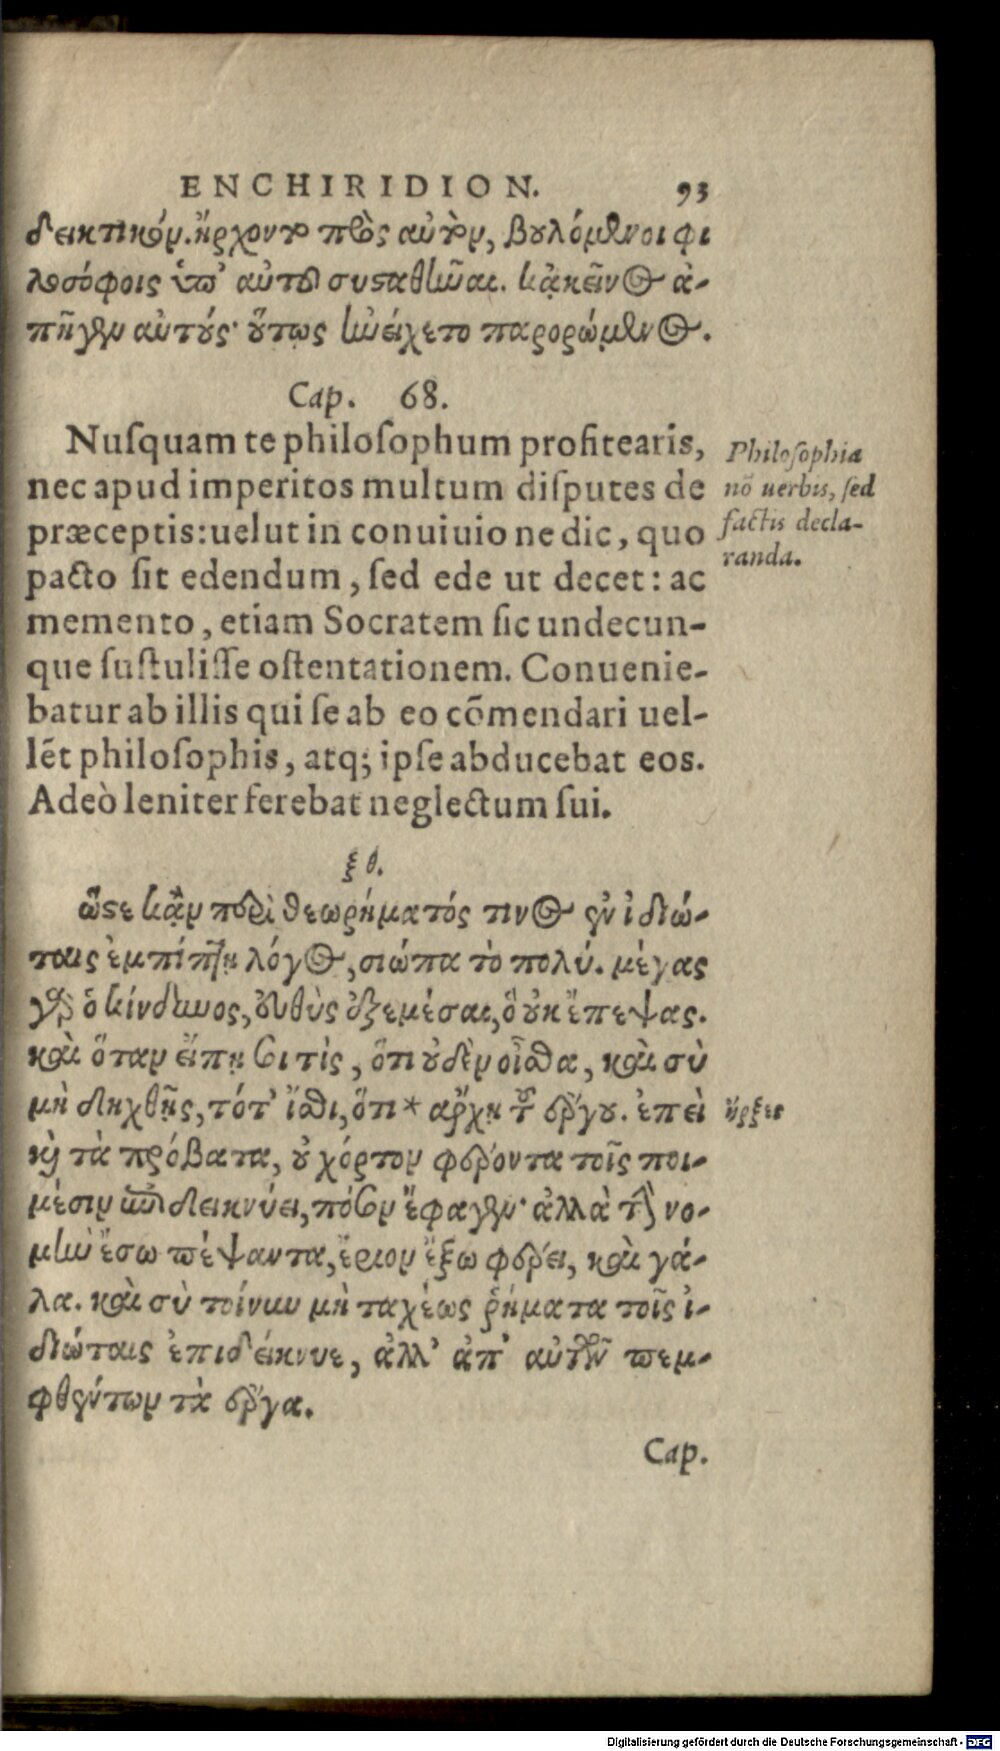 ENCHIRIDION. 93
δεικτικόν. ἤρχοντο πρὸς αὐτὸν, βουλόμενοι φι
λοσόφοις ὑπ' αὐτοῦ συσταθῆναι. κἀκεῖνος ἀ-
πῆγεν αὐτούς· οὕτως ἠνείχετο παρορώμενος.
Cap. 68.
Nuſquam te philoſophum profitearis,
nec apud imperitos multum diſputes de
præceptis: uelut in conuiuio ne dic, quo
pacto ſit edendum, ſed ede ut decet: ac
memento, etiam Socratem ſic undecun-
que ſuſtuliſſe oſtentationem. Conuenie-
batur ab illis qui ſe ab eo cōmendari uel-
lēt philoſophis, atq; ipſe abducebat eos.
Adeò leniter ferebat neglectum ſui.
Philoſophia
nō uerbis, ſed
factis decla-
randa.
ξθ.
ὥστε κἂν περὶ θεωρήματός τινος ἐν ἰδιώ-
ταις ἐμπίπτῃ λόγος, σιώπα τὸ πολύ. μέγας
γὰρ ὁ κίνδυνος, εὐθὺς ἐξεμέσαι, ὃ οὐκ ἔπεψας.
καὶ ὅταν εἴπῃ σοι τὶς, ὅτι οὐδὲν οἶσθα, καὶ σὺ
μὴ δηχθῇς, τότ' ἴσθι, ὅτι * ἄρχῃ τοῦ ἔργου. ἐπεὶ
καὶ τὰ πρόβατα, οὐ χόρτον φέροντα τοῖς ποι-
μέσιν ἐπιδεικνύει, πόσον ἔφαγεν· ἀλλὰ τὴν νο-
μὴν ἔσω πέψαντα, ἔριον ἔξω φέρει, καὶ γά-
λα. καὶ σὺ τοίνυν μὴ ταχέως ῥήματα τοῖς ἰ-
διώταις ἐπιδείκνυε, ἀλλ' ἀπ' αὐτῶν πεμ-
φθέντων τὰ ἔργα.
ἤρξει
Cap.
Digitalisierung gefördert durch die Deutsche Forschungsgemeinschaft - DFG